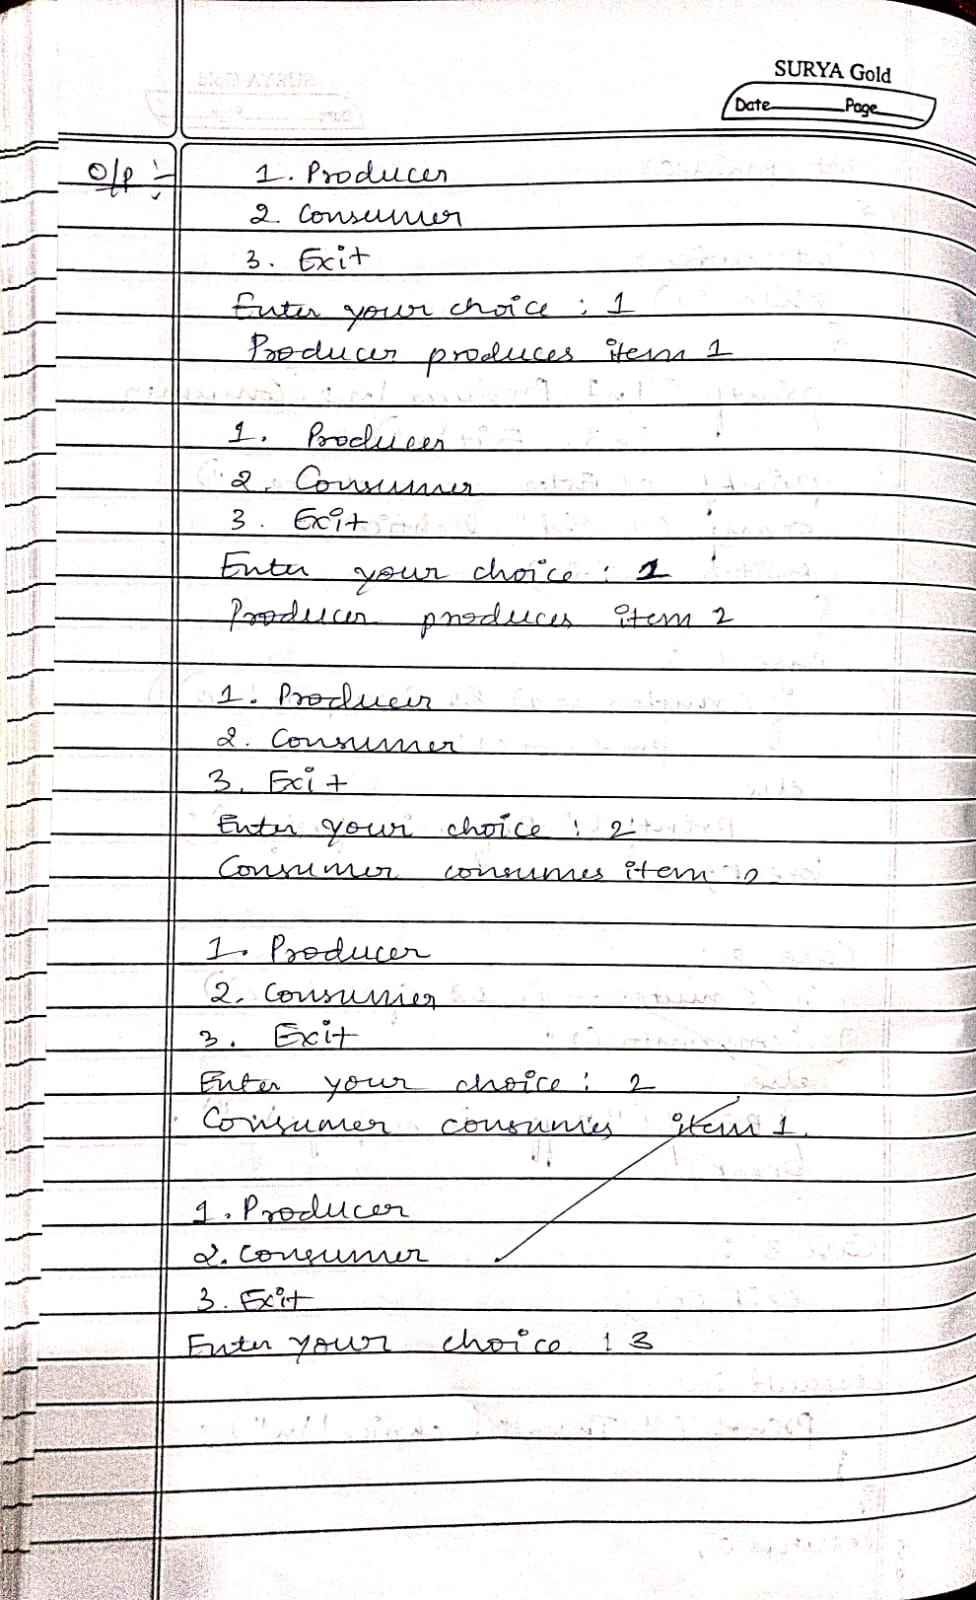 SURYA Gold
Date Page
O/P :-
1. Producer
2. Consumer
3. Exit
Enter your choice : 1
Producer produces item 1
1. Producer
2. Consumer
3. Exit
Enter your choice : 1
Producer produces item 2
1. Producer
2. Consumer
3. Exit
Enter your choice : 2
Consumer consumes item 2
1. Producer
2. Consumer
3. Exit
Enter your choice : 2
Consumer consumes item 1.
1. Producer
2. Consumer
3. Exit
Enter your choice : 3